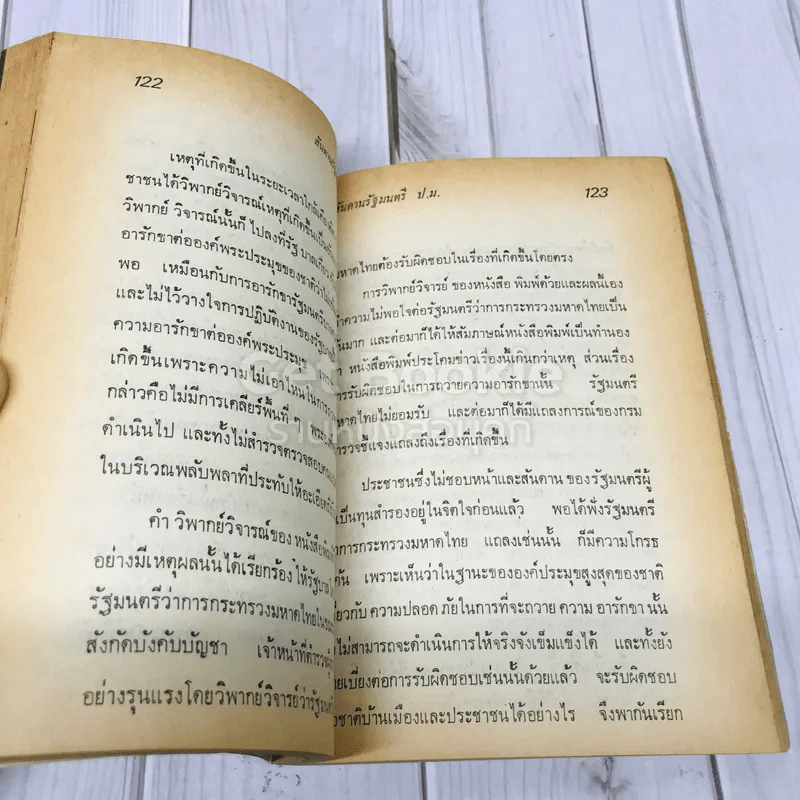 122
เหตุที่เกิดขึ้นในระยะเวลาใกล้เคียง
ชาชนได้วิพากย์วิจารณ์เหตุที่เกิดขึ้นเป็น
วิพากย์ วิจารณ์นั้นก็ ไปลงที่รัฐ บาล
อารักขาต่อองค์พระประมุขของชาติว่า
พอ เหมือนกับการอารักขารัฐมนตรี
และไม่ไว้วางใจการปฏิบัติงานของรัฐ
ความอารักขาต่อองค์พระประมุข
เกิดขึ้นเพราะความไม่เอาไหนในการ
กล่าวคือไม่มีการเคลียร์พื้นที่ ๆ
ดำเนินไป และทั้งไม่สำรวจตรวจสอบ
ในบริเวณพลับพลาที่ประทับให้อะเอียด
คำ วิพากย์วิจารณ์ของ หนังสือ
อย่างมีเหตุผลนั้นได้เรียกร้อง ให้รัฐบาล
รัฐมนตรีว่าการกระทรวงมหาดไทยใน
สังกัดบังคับบัญชา เจ้าหน้าที่ตำรวจ
อย่างรุนแรงโดยวิพากย์วิจารย์ว่ารัฐมนตรี
สันดานรัฐมนตรี ป.ม. 123
มหาดไทยต้องรับผิดชอบในเรื่องที่เกิดขึ้นโดยตรง
การวิพากย์วิจารย์ ของหนังสือ พิมพ์ด้วยและผลนี้เอง
ทำความไม่พอใจต่อรัฐมนตรีว่าการกระทรวงมหาดไทยเป็น
อันมาก และต่อมาก็ได้ให้สัมภาษณ์หนังสือพิมพ์เป็นทำนอง
ว่า หนังสือพิมพ์ประโคมข่าวเรื่องนี้เกินกว่าเหตุ ส่วนเรื่อง
การรับผิดชอบในการถวายความอารักขานั้น รัฐมนตรี
มหาดไทยไม่ยอมรับ และต่อมาก็ได้มีแถลงการณ์ของกรม
ตำรวจชี้แจงแถลงถึงเรื่องที่เกิดขึ้น
ประชาชนซึ่งไม่ชอบหน้าและสันดาน ของรัฐมนตรีผู้
เป็นทุนสำรองอยู่ในจิตใจก่อนแล้ว พอได้ฟังรัฐมนตรี
ว่าการกระทรวงมหาดไทย แถลงเช่นนั้น ก็มีความโกรธ
แค้น เพราะเห็นว่าในฐานะขององค์ประมุขสูงสุดของชาติ
เกี่ยวกับ ความปลอด ภัยในการที่จะถวาย ความ อารักขา นั้น
ไม่สามารถจะดำเนินการให้จริงจังเข็มแข็งได้ และทั้งยัง
บ่ายเบี่ยงต่อการรับผิดชอบเช่นนั้นด้วยแล้ว จะรับผิดชอบ
ต่อชาติบ้านเมืองและประชาชนได้อย่างไร จึงพากันเรียก